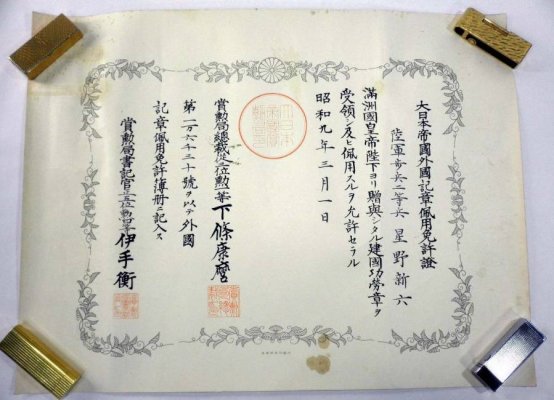 大日本帝國外國記章佩用免許證
陸軍歩兵二等兵 星野新六
滿洲國皇帝陛下ヨリ贈與シタル建國功勞章ヲ
受領シ及ヒ佩用スルヲ允許セラル
昭和九年三月一日
賞勲局總裁正位勲一等下條康麿
第一万六千二十號ヲ以テ外國
記章佩用免許簿冊ニ記入ス
賞勲局書記官正位勲等伊手衡